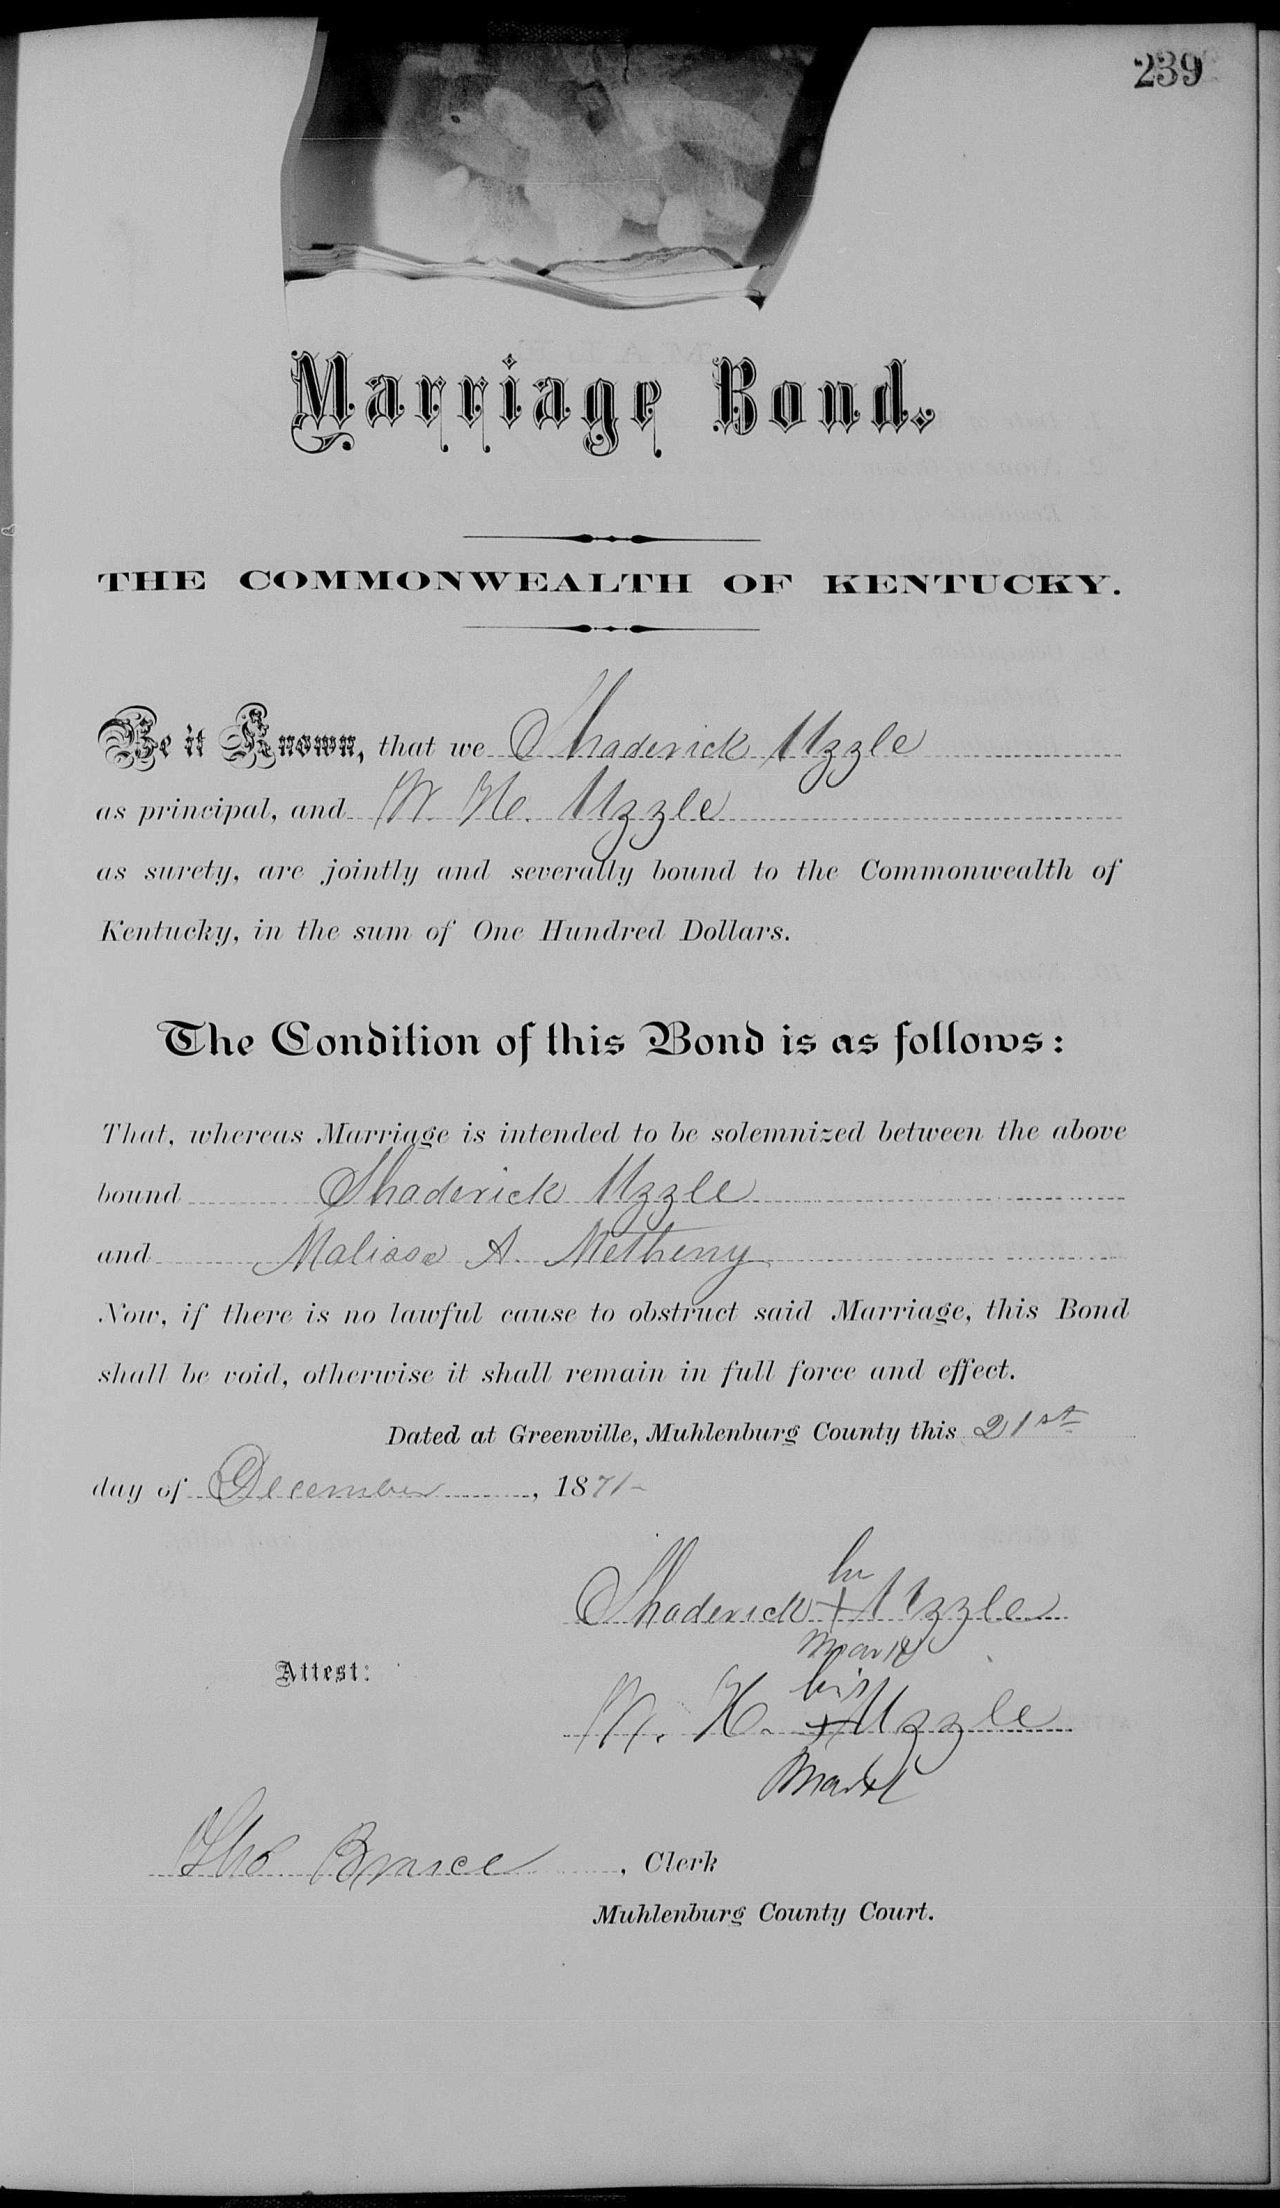 239
Marriage Bond.
THE COMMONWEALTH OF KENTUCKY.
Be it Known, that we Shaderick Uzzle
as principal, and W. H. Uzzle
as surety, are jointly and severally bound to the Commonwealth of
Kentucky, in the sum of One Hundred Dollars.
The Condition of this Bond is as follows:
That, whereas Marriage is intended to be solemnized between the above
bound Shaderick Uzzle
and Malissa A. Metheny
Now, if there is no lawful cause to obstruct said Marriage, this Bond
shall be void, otherwise it shall remain in full force and effect.
Dated at Greenville, Muhlenburg County this 21st
day of December, 1871
his
Shaderick + Uzzle
mark
Attest:
his
W. H. + Uzzle
mark
Tho Bruce, Clerk
Muhlenburg County Court.